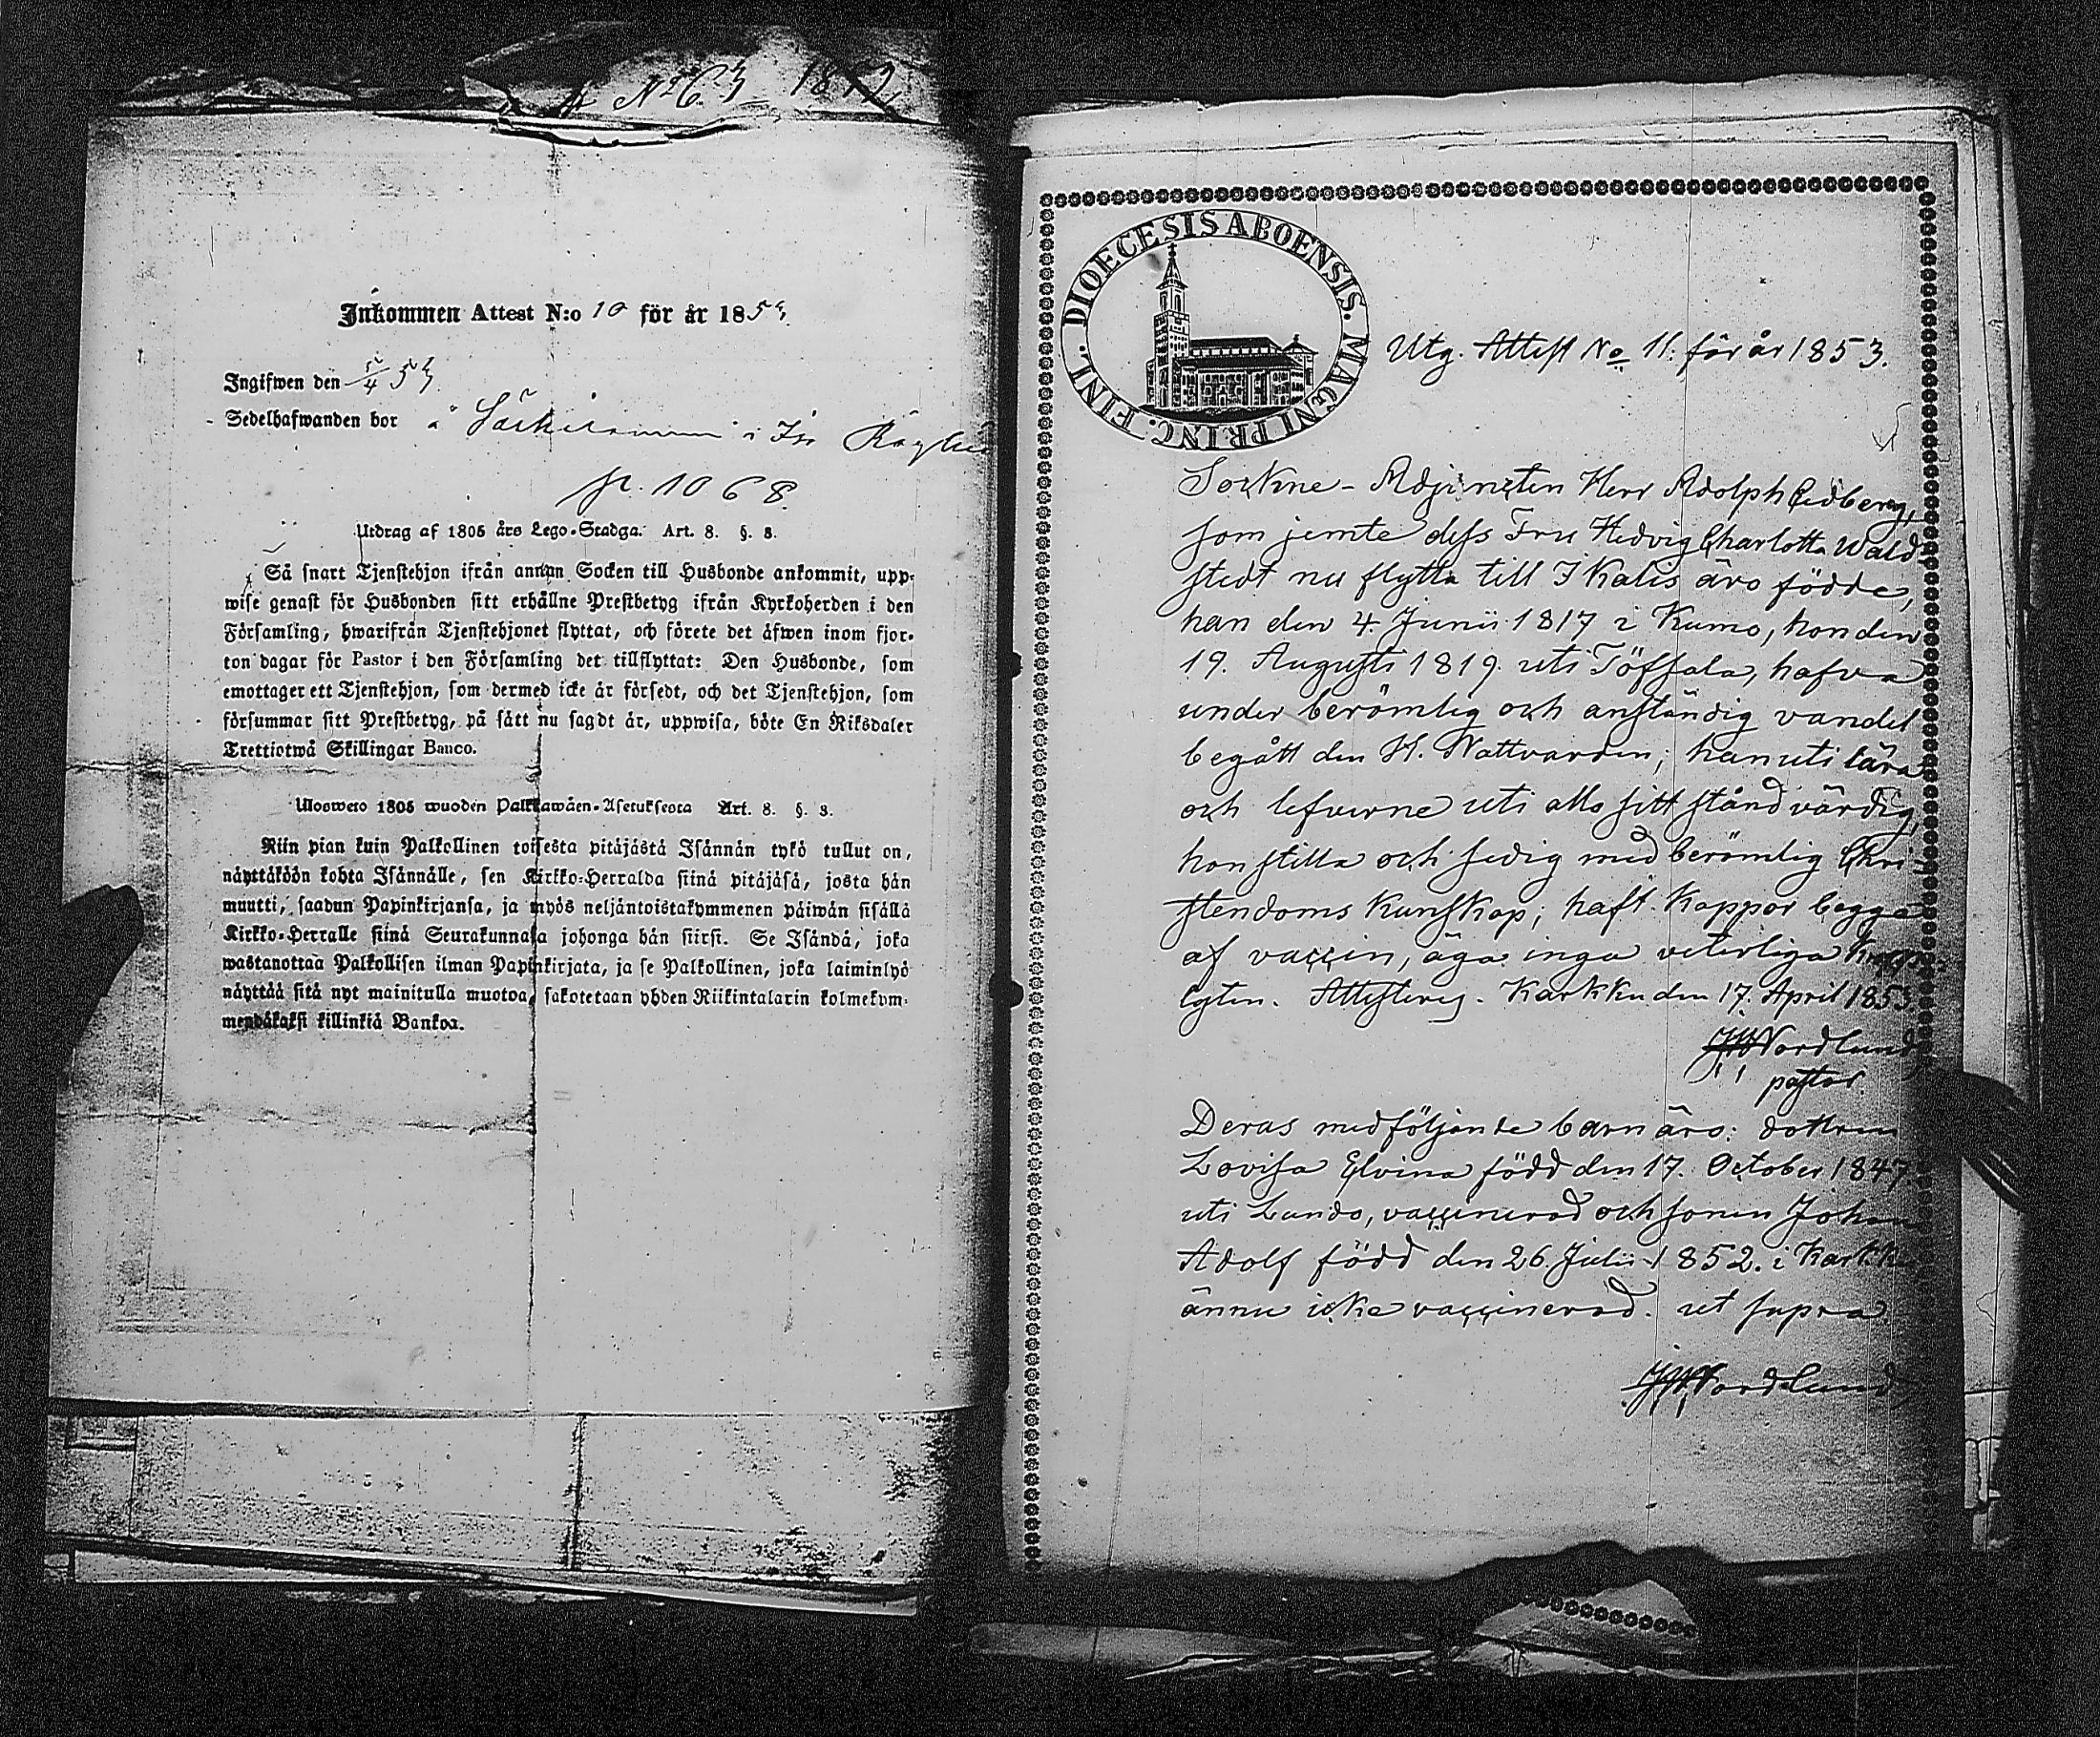 No 63 1852
Inkommen Attest N:o 10 för år 1853.
Ingifwen den 5/4 53
Sedelhafwanden bor å i
p. 1068.
Utdrag af 1805 års Lego-Stadga. Art. 8. §. 8.
Så snart Tjenstehjon ifrån annan Socken till Husbonde ankommit, upp-
wise genast för Husbonden sitt erhållne Prestbetyg ifrån Kyrkoherden i den
Församling, hwarifrån Tjenstehjonet flyttat, och förete det äfwen inom fjor-
ton dagar för Pastor i den Församling det tillflyttat: Den Husbonde, som
emottager ett Tjenstehjon, som dermed icke är försedt, och det Tjenstehjon, som
försummar sitt Prestbetyg, på sätt nu sagdt är, uppwisa, böte En Riksdaler
Trettiotwå Skillingar Banco.
Uloswето 1805 wuoden Palkkawäen-Asetuksesta Art. 8. §. 8.
Niin pian kuin Palkollinen toisesta pitäjästä Isännän tykö tullut on,
näyttäköön kohta Isännälle, sen Kirkko-Herralda siinä pitäjäsä, josta hän
muutti, saadun Papinkirjansa, ja myös neljäntoistakymmenen päiwän sisällä
Kirkko-Herralle siinä Seurakunnasa johonga hän siirsi. Se Isändä, joka
wastanottaa Palkollisen ilman Papinkirjata, ja se Palkollinen, joka laiminlyö
näyttää sitä nyt mainitulla muotoa, sakotetaan yhden Riikintalarin kolmekym-
mendäkaksi killinkiä Bankoa.
DIOECESIS ABOENSIS. MAGNI PRINC. FINL.
Utg. Attest No 11. för år 1853.
Sockne-Adjuncten Herr Adolph Cedberg,
som jemte dess Fru Hedvig Charlotta Wald-
stedt nu flytta till Ikalis äro födde,
han den 4. Junii 1817 i Kumo, hon den
19. Augusti 1819. uti Töfsala, hafva
under berömlig och anständig vandel
begått den H. Nattvarden; han uti lära
och lefverne uti allo sitt stånd värdig,
hon stilla och sedig med berömlig Chri-
stendoms kunskap; haft koppor begge
af vaccin, äga inga veterliga
lyten. Attesteras. Karkku den 17. April 1853.
Nordlund
pastor.
Deras medföljande barn äro: dottren
Lovisa Elvina född den 17. October 1847.
uti Lundo, vaccinerad och sonen Johan
Adolf född den 26. Julii 1852. i Karkku
ännu icke vaccinerad. ut supra.
Nordlund